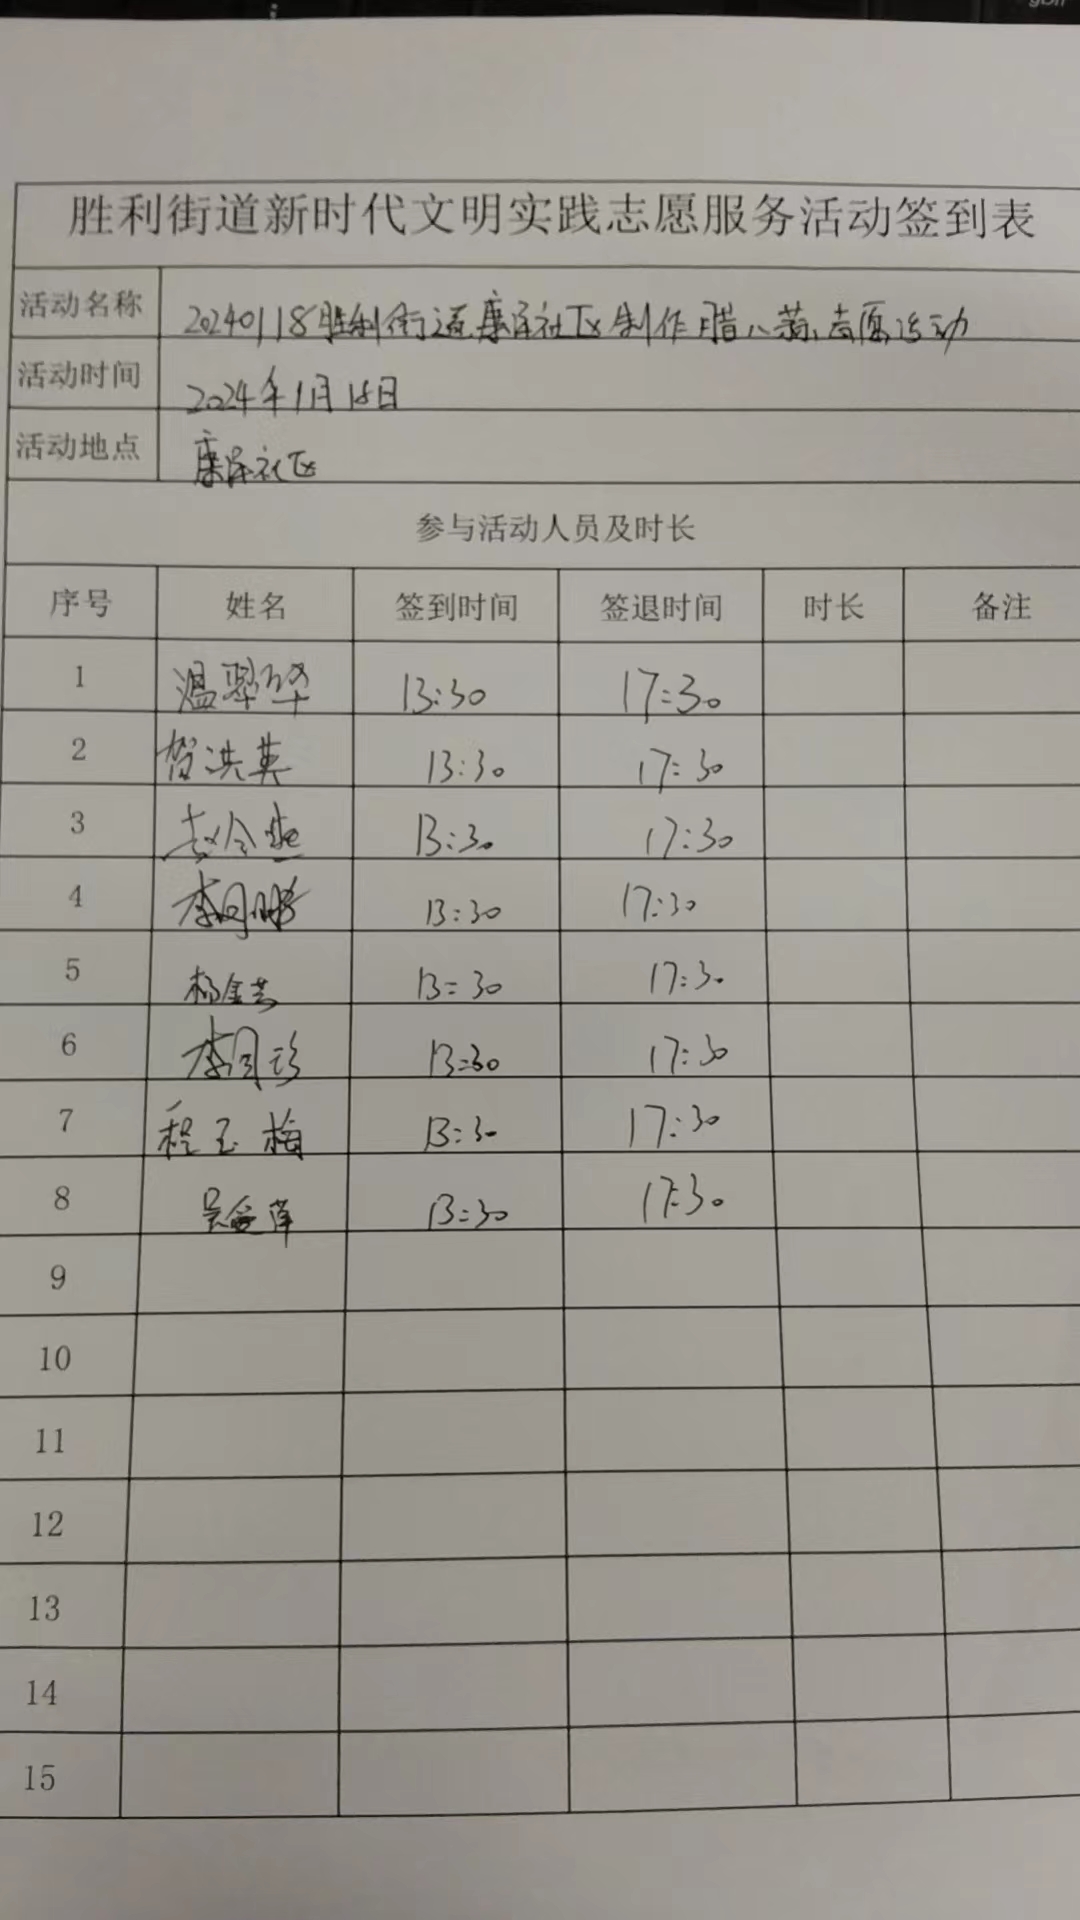 胜利街道新时代文明实践志愿服务活动签到表
活动名称 20240118胜利街道康泽社区制作腊八蒜志愿活动
活动时间 2024年1月18日
活动地点 康泽社区
参与活动人员及时长
序号 姓名 签到时间 签退时间 时长 备注
1 温翠华 13:30 17:30
2 贺洪英 13:30 17:30
3 13:30 17:30
4 李同 13:30 17:30
5 杨金 13:30 17:30
6 李同珍 13:30 17:30
7 程玉梅 13:30 17:30
8 吴爱萍 13:30 17:30
9
10
11
12
13
14
15